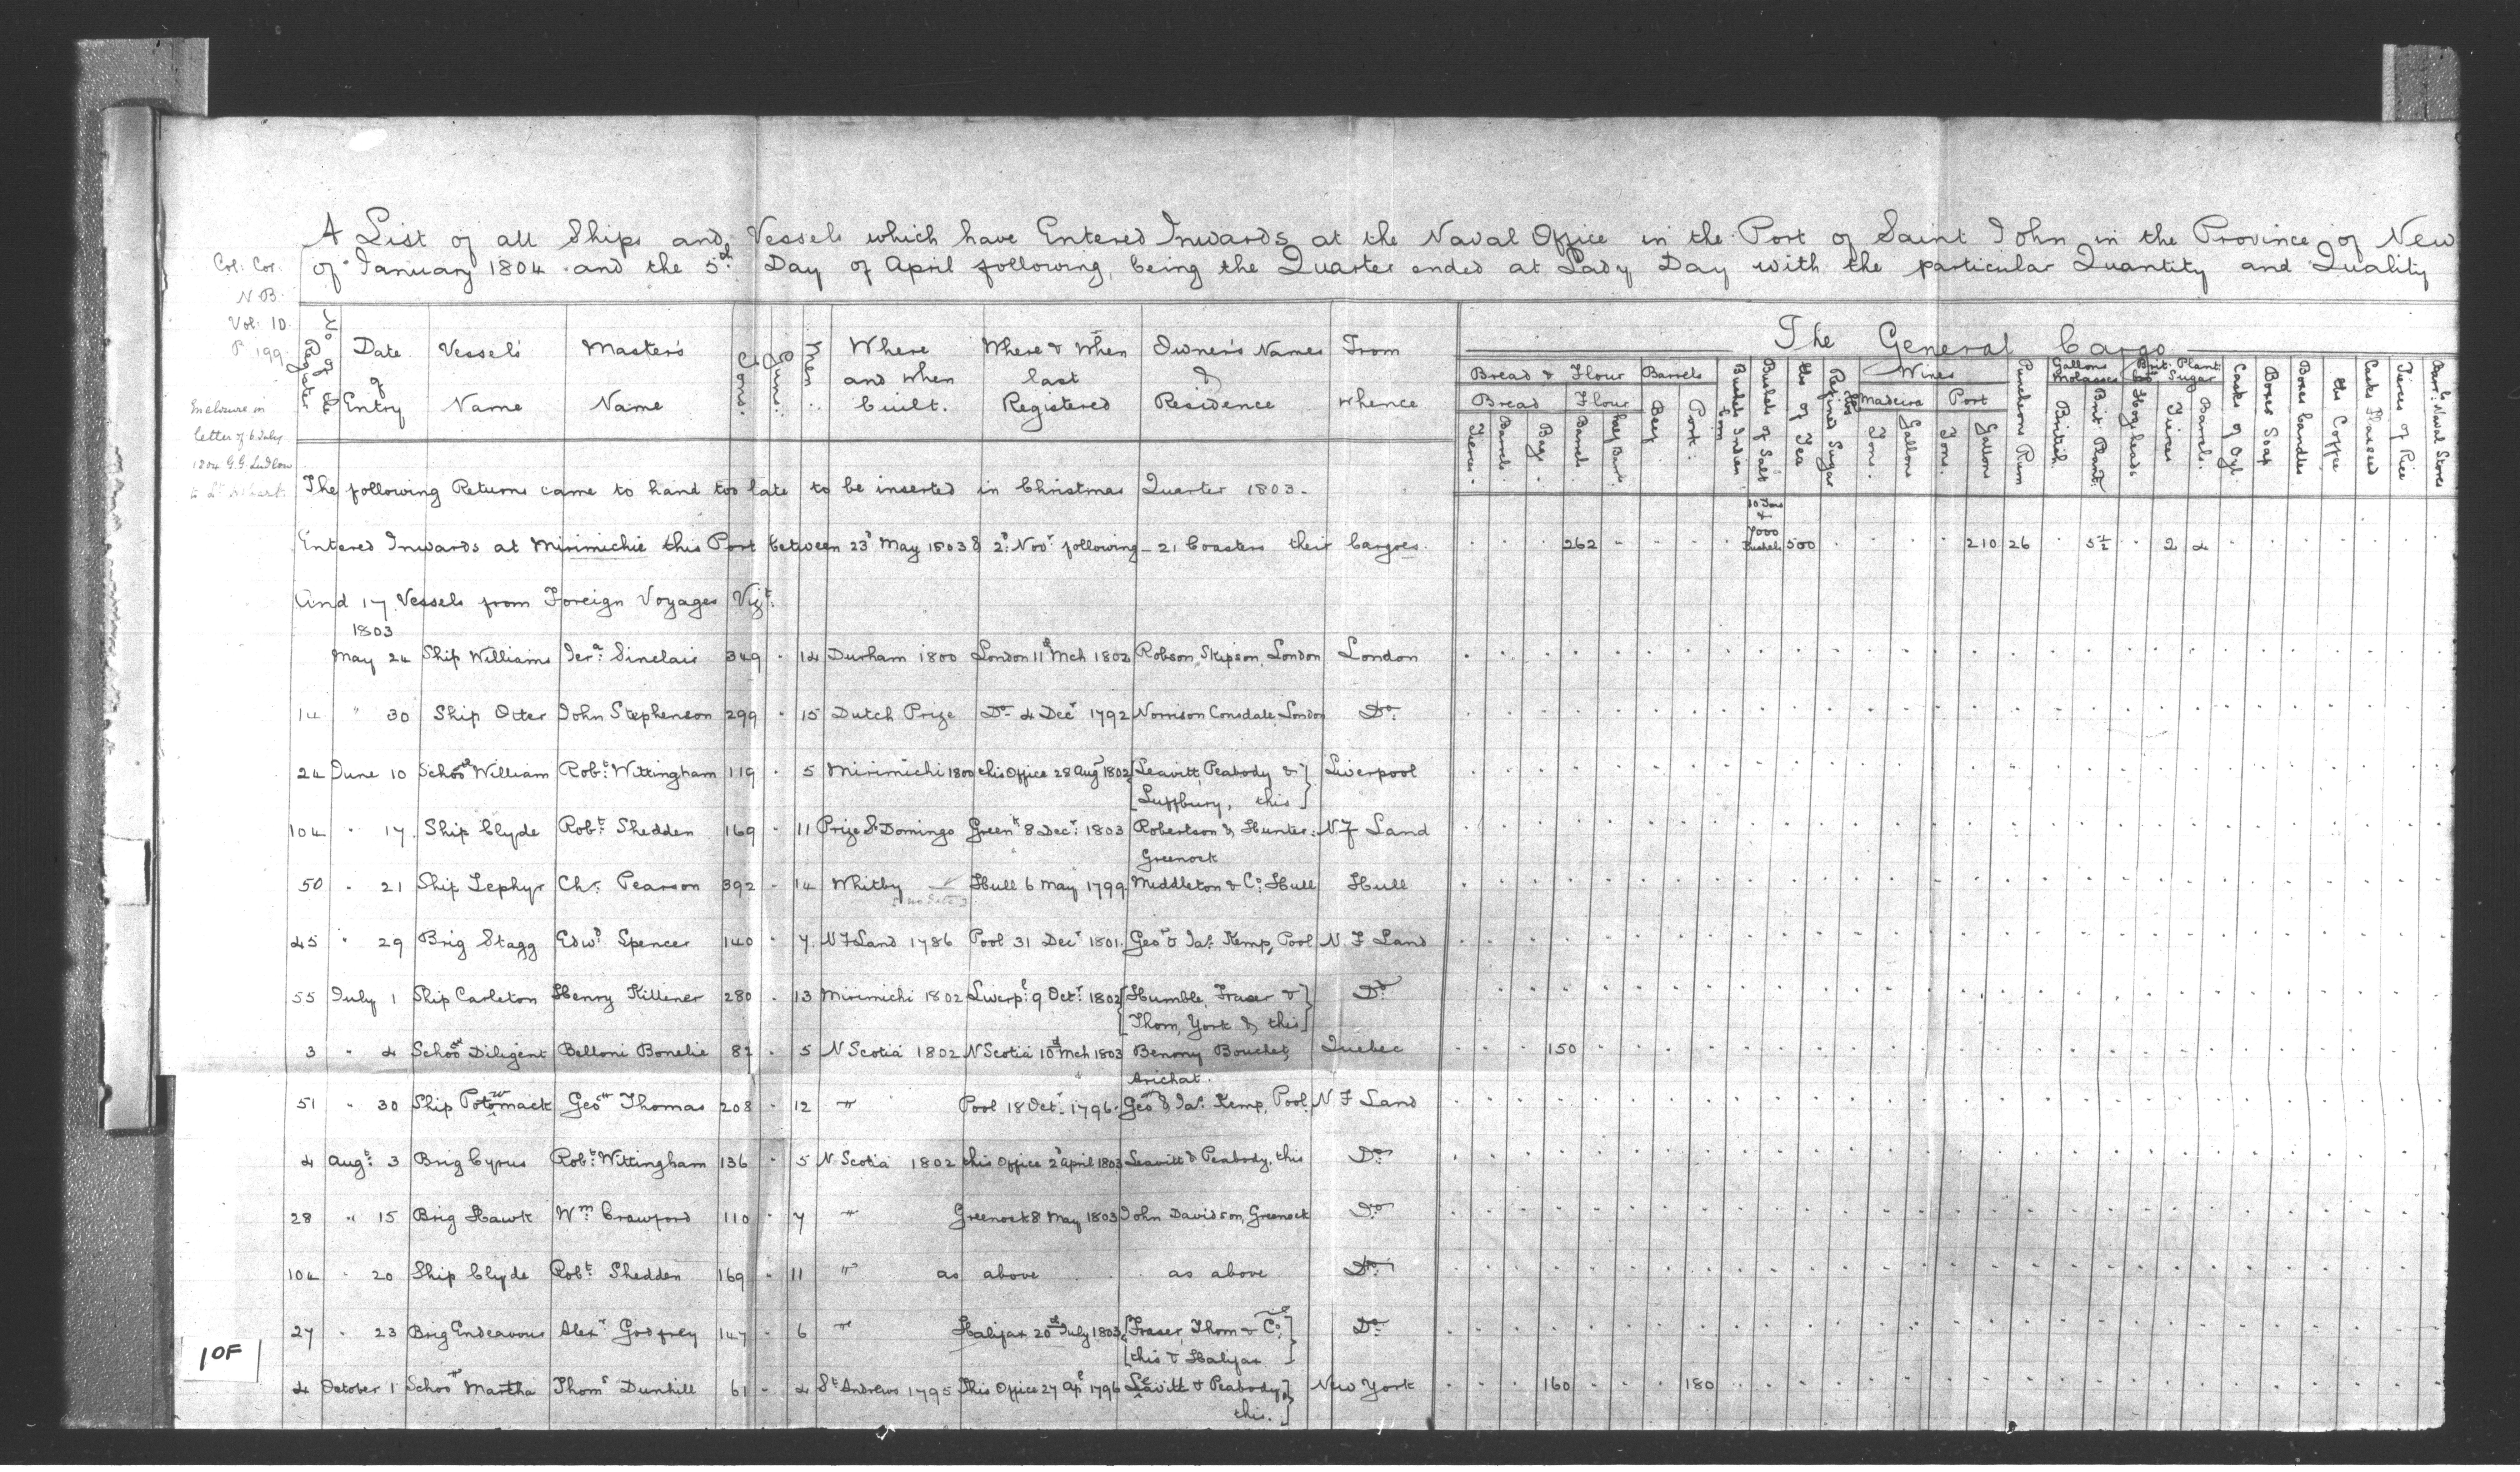 A List of all Ships and Vessels which have Entered Inwards at the Naval Office in the Port of Saint John in the Province of New
of January 1804 and the 5th Day of April following, being the Quarter ended at Lady Day with the particular Quantity and Quality
Col: Cor:
N.B.
Vol: 10.
P. 199.
Enclosure in
letter of 6 July
1804 G.G. Ludlow
to
No of the Register
Date of Entry
Vessel's Name
Master's Name
Tons.
Guns.
Men
Where and when built.
Where & When last Registered
Owner's Names & Residence
From whence
The General Cargo
Bread & Flour
Bread
Tierces.
Barrels.
Bags
Flour
Barrels
Half Barr:
Barrels
Beef
Pork:
Bushels Indian Corn
Bushels of Salt
lbs of Tea
Refined Sugar lbs
Wines
Madeira
Tons.
Gallons
Port
Tons.
Gallons
Puncheons Rum
Gallons Molasses
British
Brit Plant:
Brit: Plant Sugar
Hogsheads
Tierces
Barrels.
Casks of Oyl.
Boxes Soap
Boxes Candles
lbs Coffee
Casks Flaxseed
Tierces of Rice
Barr:ls Naval Stores
The following Returns came to hand too late to be inserted in Christmas Quarter 1803.
Entered Inwards at Mirimichie this Port between 23d May 1803 & 2d Novr following – 21 Coasters their Cargoes. 262 10 Tons & 7000 Bushels 500 210 26 5½ 2 4
And 17 Vessels from Foreign Voyages Vizt:
1803
May 24 Ship Williams Jera: Sinclair 349 14 Durham 1800 London 11th Mch 1802 Robson, Skipson, London London
14 " 30 Ship Otter John Stephenson 299 15 Dutch Prize Do 4 Decr 1792 Norrison Consdale, London Do
24 June 10 Schoor William Robt: Wittingham 119 5 Mirimichi 1800 this Office 28 Augt 1802 [Leavitt, Peabody &] Liverpool
[Luffbury, this]
104 " 17 Ship Clyde Robt: Shedden 169 11 Prize St Domingo Greenk 8 Decr 1803 Robertson & Hunter: N.F Land
Greenock
50 " 21 Ship Zephyr Chr. Pearson 392 14 Whitby Hull 6 May 1799 Middleton & Co: Hull Hull
[no date]
45 " 29 Brig Stagg Edwd Spencer 140 7 N F Land 1786 Pool 31 Decr 1801. Geo & Jas. Kemp, Pool N. F Land
55 July 1 Ship Carleton Henry Kittener 280 13 Mirimichi 1802 Liverpl: 9 Octr 1802 [Humble, Fraser &] Do
[Thom, York & this]
3 " 4 Schoor Diligent Belloni Bonelie 82 5 N Scotia 1802 N Scotia 10th Mch 1803 Benony Bouchet, Quebec 150
Arichat.
51 " 30 Ship Potomack Geo Thomas 208 12 " Pool 18 Octr 1796. Geo & Jas. Kemp, Pool. N F Land
4 Augt: 3 Brig Cyrus Robt: Wittingham 136 5 N Scotia 1802 this Office 2d April 1803 Leavitt & Peabody, this Do
28 " 15 Brig Hawk Wm Crawford 110 7 " Greenock 8 May 1803 John Davidson, Greenock Do
104 " 20 Ship Clyde Robt Shedden 169 11 " as above as above Do
27 " 23 Brig Endeavour Alexr Godfrey 147 6 " Halifax 20th July 1803 [Fraser, Thom & Co.] Do
[this & Halifax]
4 October 1 Schoor Martha Thoms Dunhill 61 4 St Andrews 1795 This Office 27 Apl 1796 Leavitt & Peabody,] New York 160 180
this.]
10F